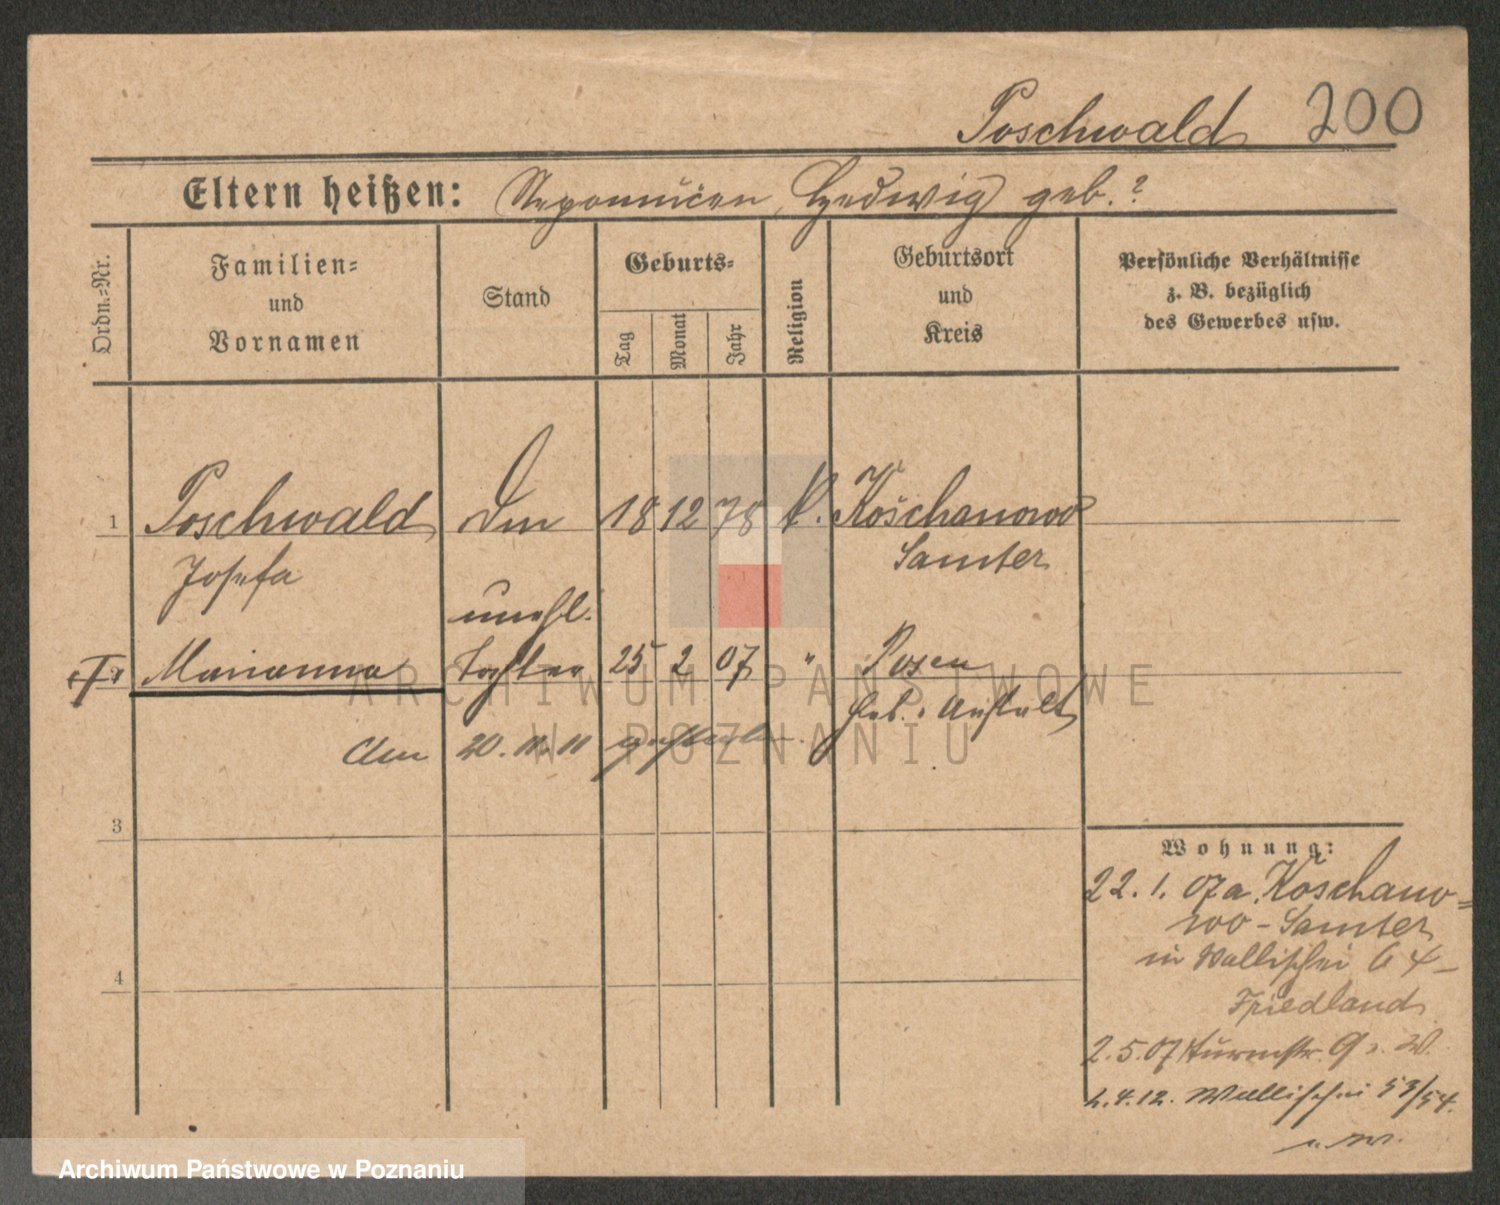 Poschwald 200
Eltern heißen: Nepomucen, Hedwig geb. ?
Ordn.-Nr.
Familien-
und
Vornamen
Stand
Geburts-
Tag
Monat
Jahr
Religion
Geburtsort
und
Kreis
Persönliche Verhältnisse
z. B. bezüglich
des Gewerbes usw.
1 Poschwald 18 12 78 k. Koschanowo
Josefa Samter
unehl.
2 Marianna Tochter 25 2 07 " Posen
Geb. Anstalt
am 20. 11. 11 gestorben.
3
4
Wohnung:
22. 1. 07 a. Koschano-
wo - Samter
in Wallischei 64 -
Friedland
2. 5. 07 Turmstr. 9
2. 4. 12. Wallischei 53/54.
ARCHIWUM PAŃSTWOWE
W POZNANIU
Archiwum Państwowe w Poznaniu